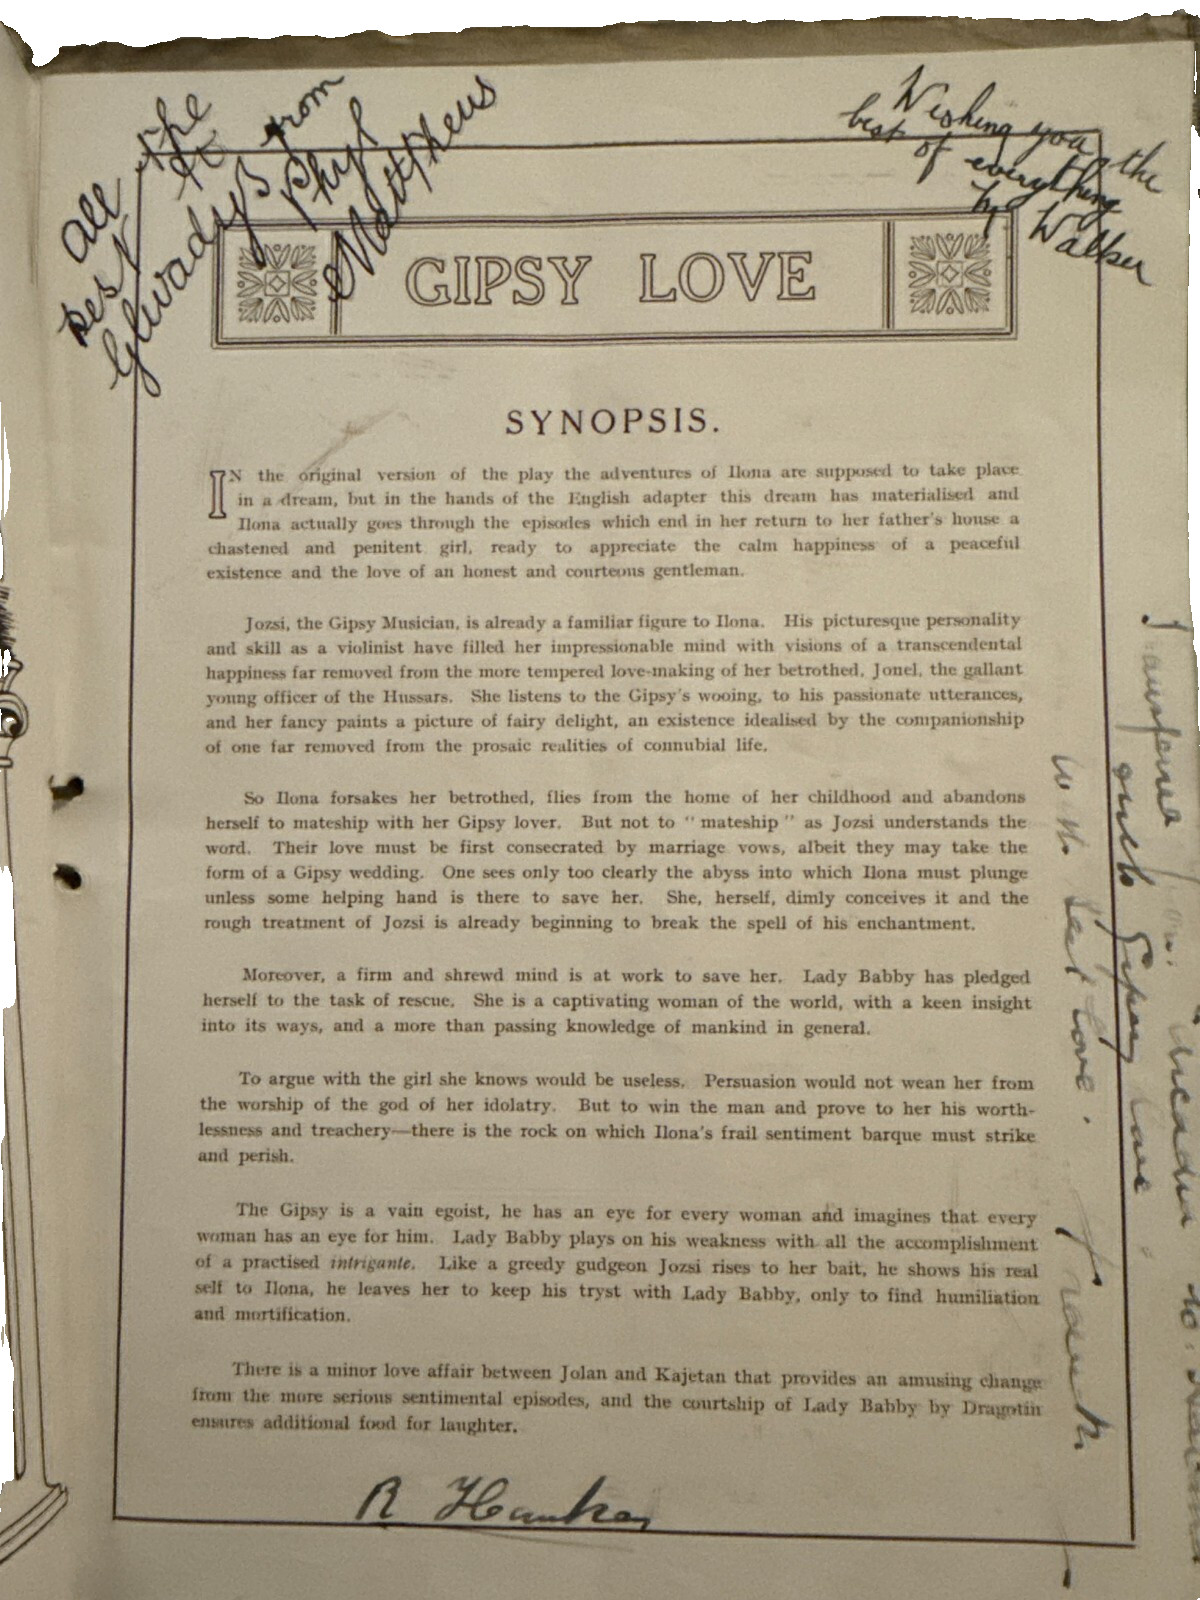 All the
best to
Gladys from
Phyl
Matthews
Wishing you the
best of everything
Walker
GIPSY LOVE
SYNOPSIS.
IN the original version of the play the adventures of Ilona are supposed to take place
in a dream, but in the hands of the English adapter this dream has materialised and
Ilona actually goes through the episodes which end in her return to her father's house a
chastened and penitent girl, ready to appreciate the calm happiness of a peaceful
existence and the love of an honest and courteous gentleman.
Jozsi, the Gipsy Musician, is already a familiar figure to Ilona. His picturesque personality
and skill as a violinist have filled her impressionable mind with visions of a transcendental
happiness far removed from the more tempered love-making of her betrothed, Jonel, the gallant
young officer of the Hussars. She listens to the Gipsy's wooing, to his passionate utterances,
and her fancy paints a picture of fairy delight, an existence idealised by the companionship
of one far removed from the prosaic realities of connubial life.
So Ilona forsakes her betrothed, flies from the home of her childhood and abandons
herself to mateship with her Gipsy lover. But not to "mateship" as Jozsi understands the
word. Their love must be first consecrated by marriage vows, albeit they may take the
form of a Gipsy wedding. One sees only too clearly the abyss into which Ilona must plunge
unless some helping hand is there to save her. She, herself, dimly conceives it and the
rough treatment of Jozsi is already beginning to break the spell of his enchantment.
Moreover, a firm and shrewd mind is at work to save her. Lady Babby has pledged
herself to the task of rescue. She is a captivating woman of the world, with a keen insight
into its ways, and a more than passing knowledge of mankind in general.
To argue with the girl she knows would be useless. Persuasion would not wean her from
the worship of the god of her idolatry. But to win the man and prove to her his worth-
lessness and treachery—there is the rock on which Ilona's frail sentiment barque must strike
and perish.
The Gipsy is a vain egoist, he has an eye for every woman and imagines that every
woman has an eye for him. Lady Babby plays on his weakness with all the accomplishment
of a practised intrigante. Like a greedy gudgeon Jozsi rises to her bait, he shows his real
self to Ilona, he leaves her to keep his tryst with Lady Babby, only to find humiliation
and mortification.
There is a minor love affair between Jolan and Kajetan that provides an amusing change
from the more serious sentimental episodes, and the courtship of Lady Babby by Dragotin
ensures additional food for laughter.
Gipsy Love
with best love.
R